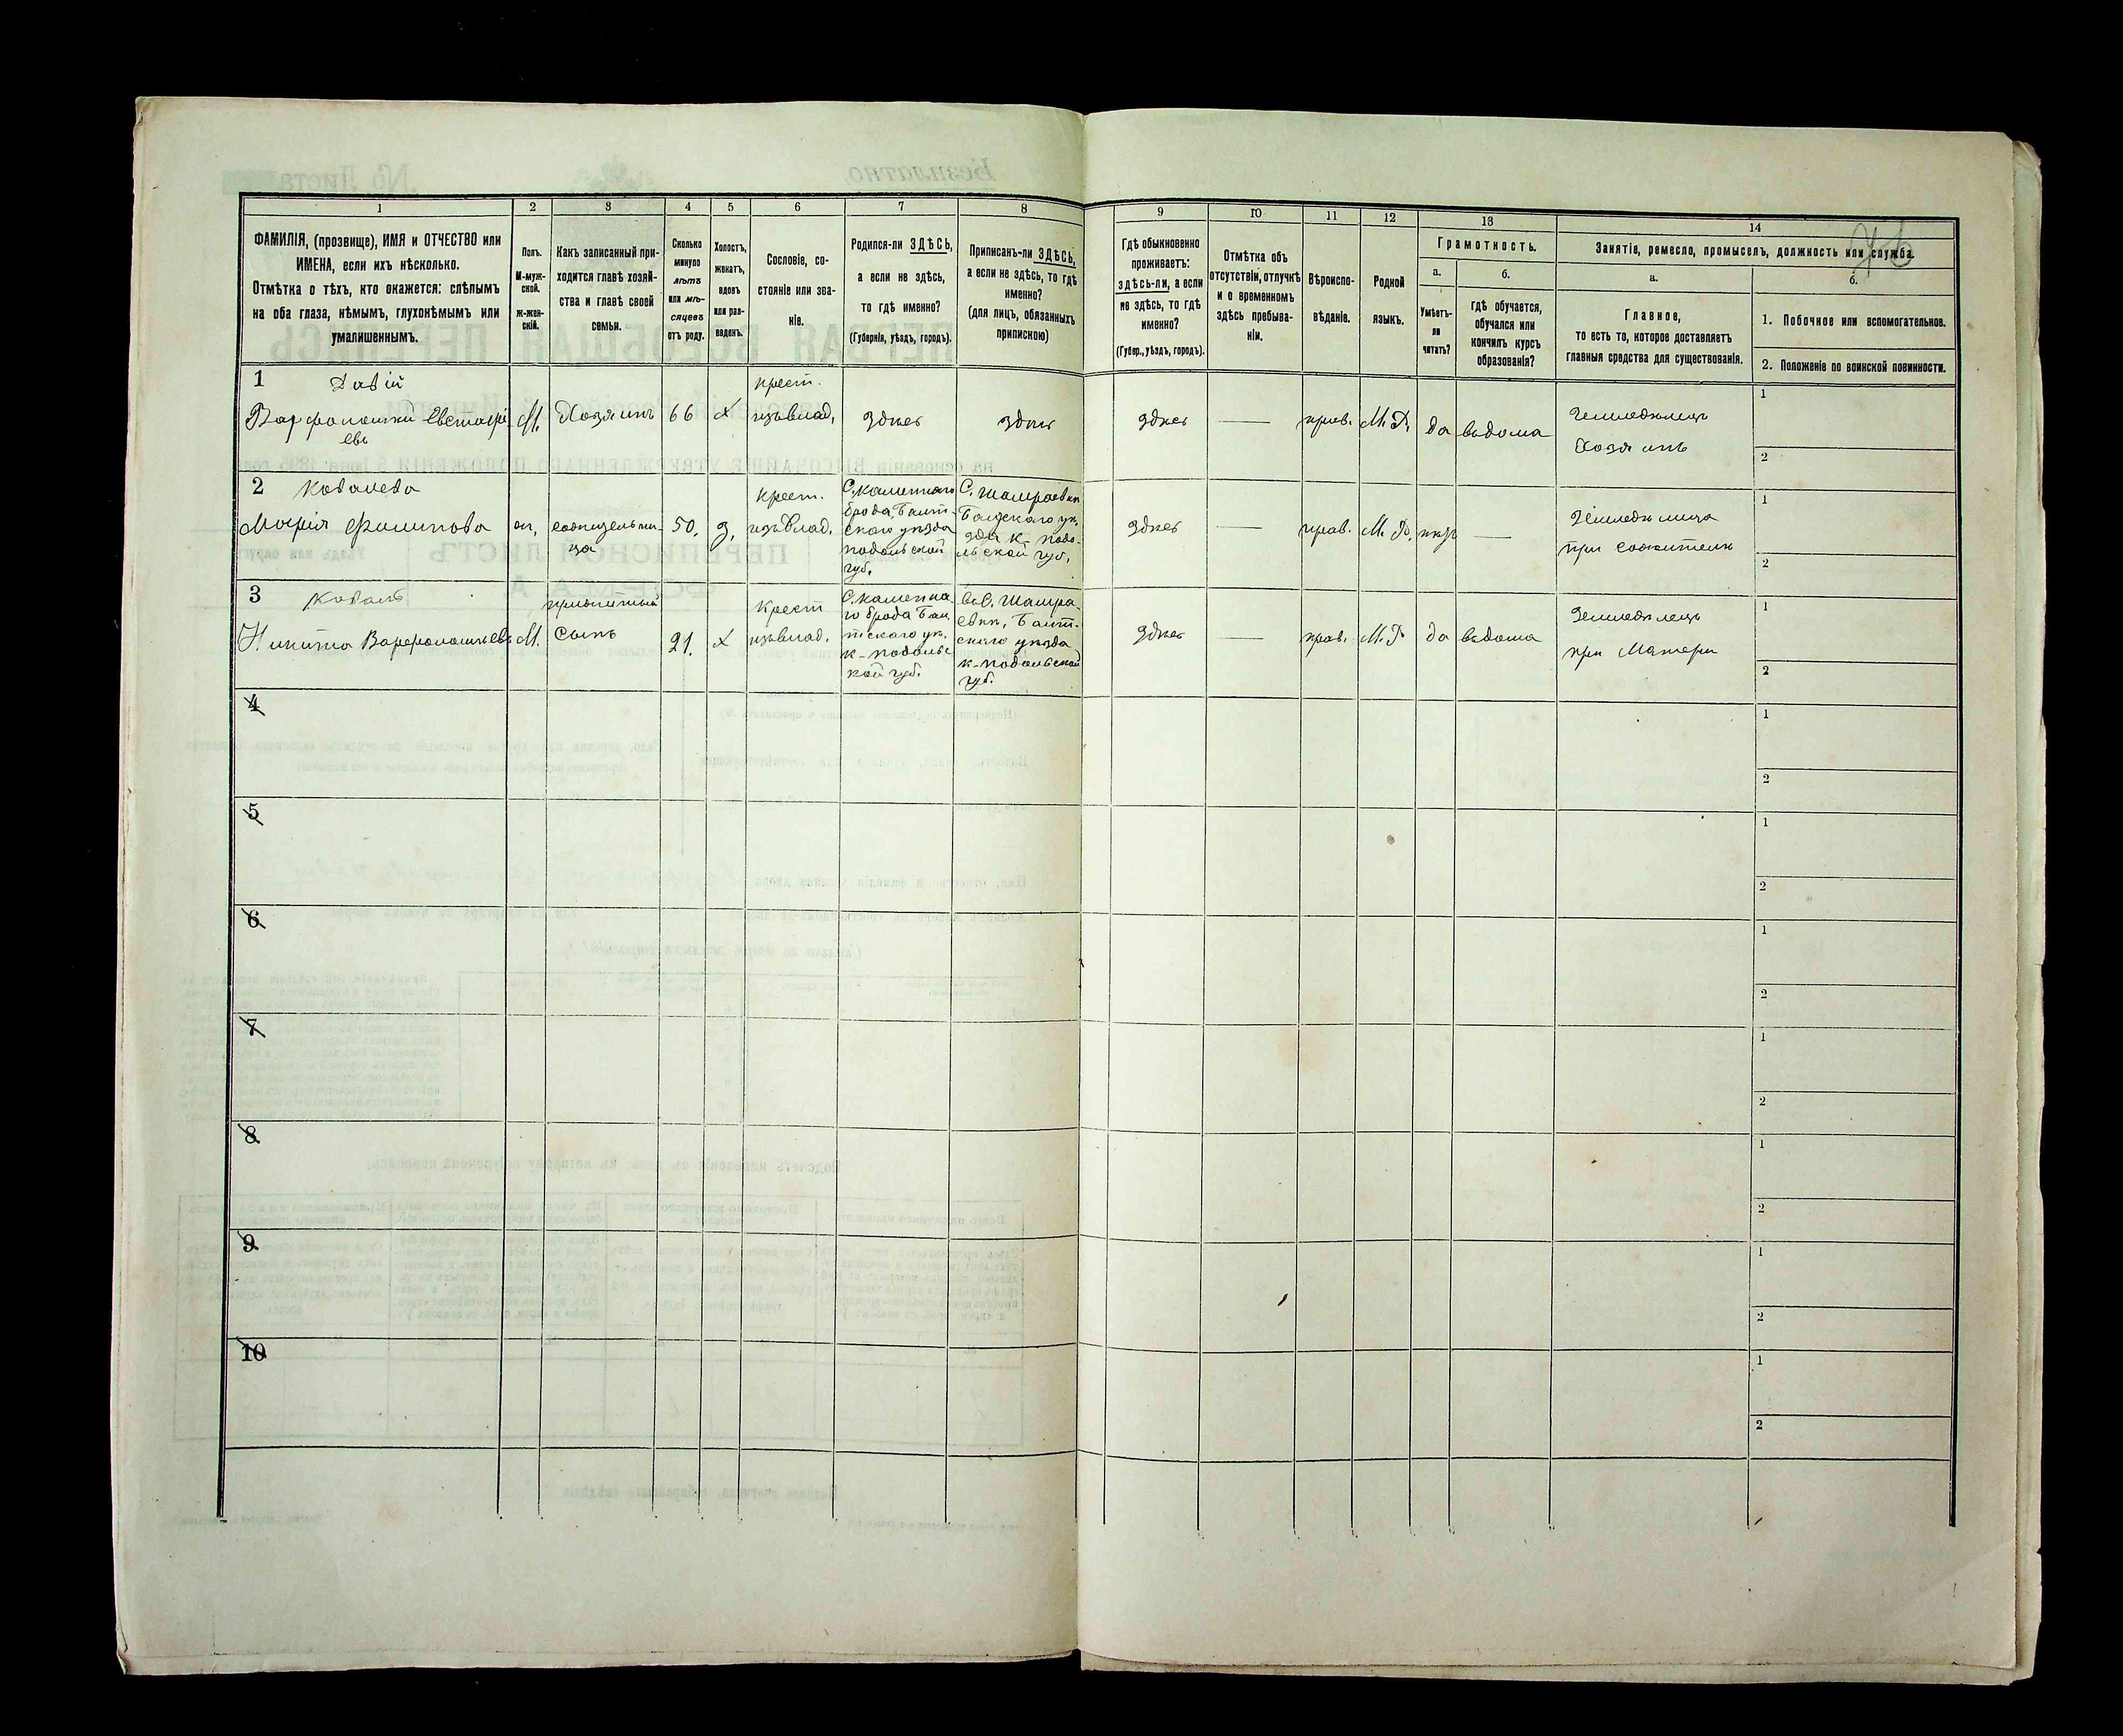 1 2 3 4 5 6 7 8 9 10 11 12 13 14
ФАМИЛІЯ, (прозвище), ИМЯ и ОТЧЕСТВО или
ИМЕНА, если ихъ нѣсколько.
Отмѣтка о тѣхъ, кто окажется: слѣпымъ
на оба глаза, нѣмымъ, глухонѣмымъ или
умалишеннымъ.
Полъ.
М-муж-
ской.
ж-жен-
скій.
Какъ записанный при-
ходится главѣ хозяй-
ства и главѣ своей
семьи.
Сколько
минуло
лѣтъ
или мѣ-
сяцевъ
отъ роду.
Холостъ,
женатъ,
вдовъ
или раз-
веденъ.
Сословіе, со-
стояніе или зва-
ніе.
Родился-ли ЗДѢСЬ,
а если не здѣсь,
то гдѣ именно?
(Губернія, уѣздъ, городъ).
Приписанъ-ли ЗДѢСЬ,
а если не здѣсь, то гдѣ
именно?
(для лицъ, обязанныхъ
припискою)
Гдѣ обыкновенно
проживаетъ:
здѣсь-ли, а если
не здѣсь, то гдѣ
именно?
(Губер., уѣздъ, городъ).
Отмѣтка объ
отсутствіи, отлучкѣ
и о временномъ
здѣсь пребыва-
ніи.
Вѣроиспо-
вѣданіе.
Родной
языкъ.
Грамотность.
а.
Умѣетъ-
ли
читать?
б.
гдѣ обучается,
обучался или
кончилъ курсъ
образованія?
Занятіе, ремесло, промыселъ, должность или служба.
а.
Главное,
то есть то, которое доставляетъ
главныя средства для существованія.
б.
1. Побочное или вспомогательное.
2. Положеніе по воинской повинности.
1 Давій
Варфоломей Евстафі
евъ
М.
Хозяинъ
66
х
крест.
изъ влад,
здѣсь
здѣсь
здѣсь
—
прав.
М.Р.
да
въ дома
Земледѣлецъ
Хозяинъ
1
2
2 Ковалева
Марія Филипова
ж,
сожительни-
ца
50.
з.
крест.
изъ влад.
С. Каменнаго
брода, Балт-
скаго уѣзда
подольской
губ.
С. Шамраевки
Балтскаго уѣ,
зда К подо-
льской губ,
здѣсь
—
прав.
М. Р.
нѣтъ
—
Земледѣлица
при сожителѣ
1
2
3 Коваль
Никита Варфоломѣевъ
М.
приемный
Сынъ
21.
х
крест
изъ влад.
С. Каменна-
го брода Бал
тскаго уѣ.
к-подольс
кой губ.
въ С. Шамра-
евки, Балт-
скаго уѣзда
к-подольской
губ.
здѣсь
—
прав.
М.Р
да
въ дома
Земледѣлецъ
при Матери
1
2
4
1
2
5
1
2
6
1
2
7
1
2
8
1
2
9
1
2
10
1
2